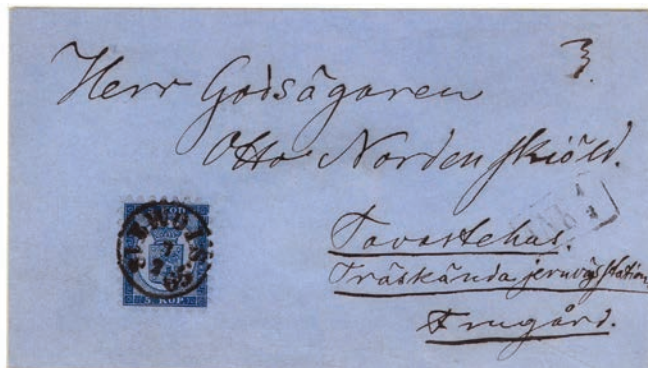 3.
Herr Godsägaren
Otto Nordenskiöld.
Tavastehus.
Träskända jernvägsstation
Frugård.
5 KOP